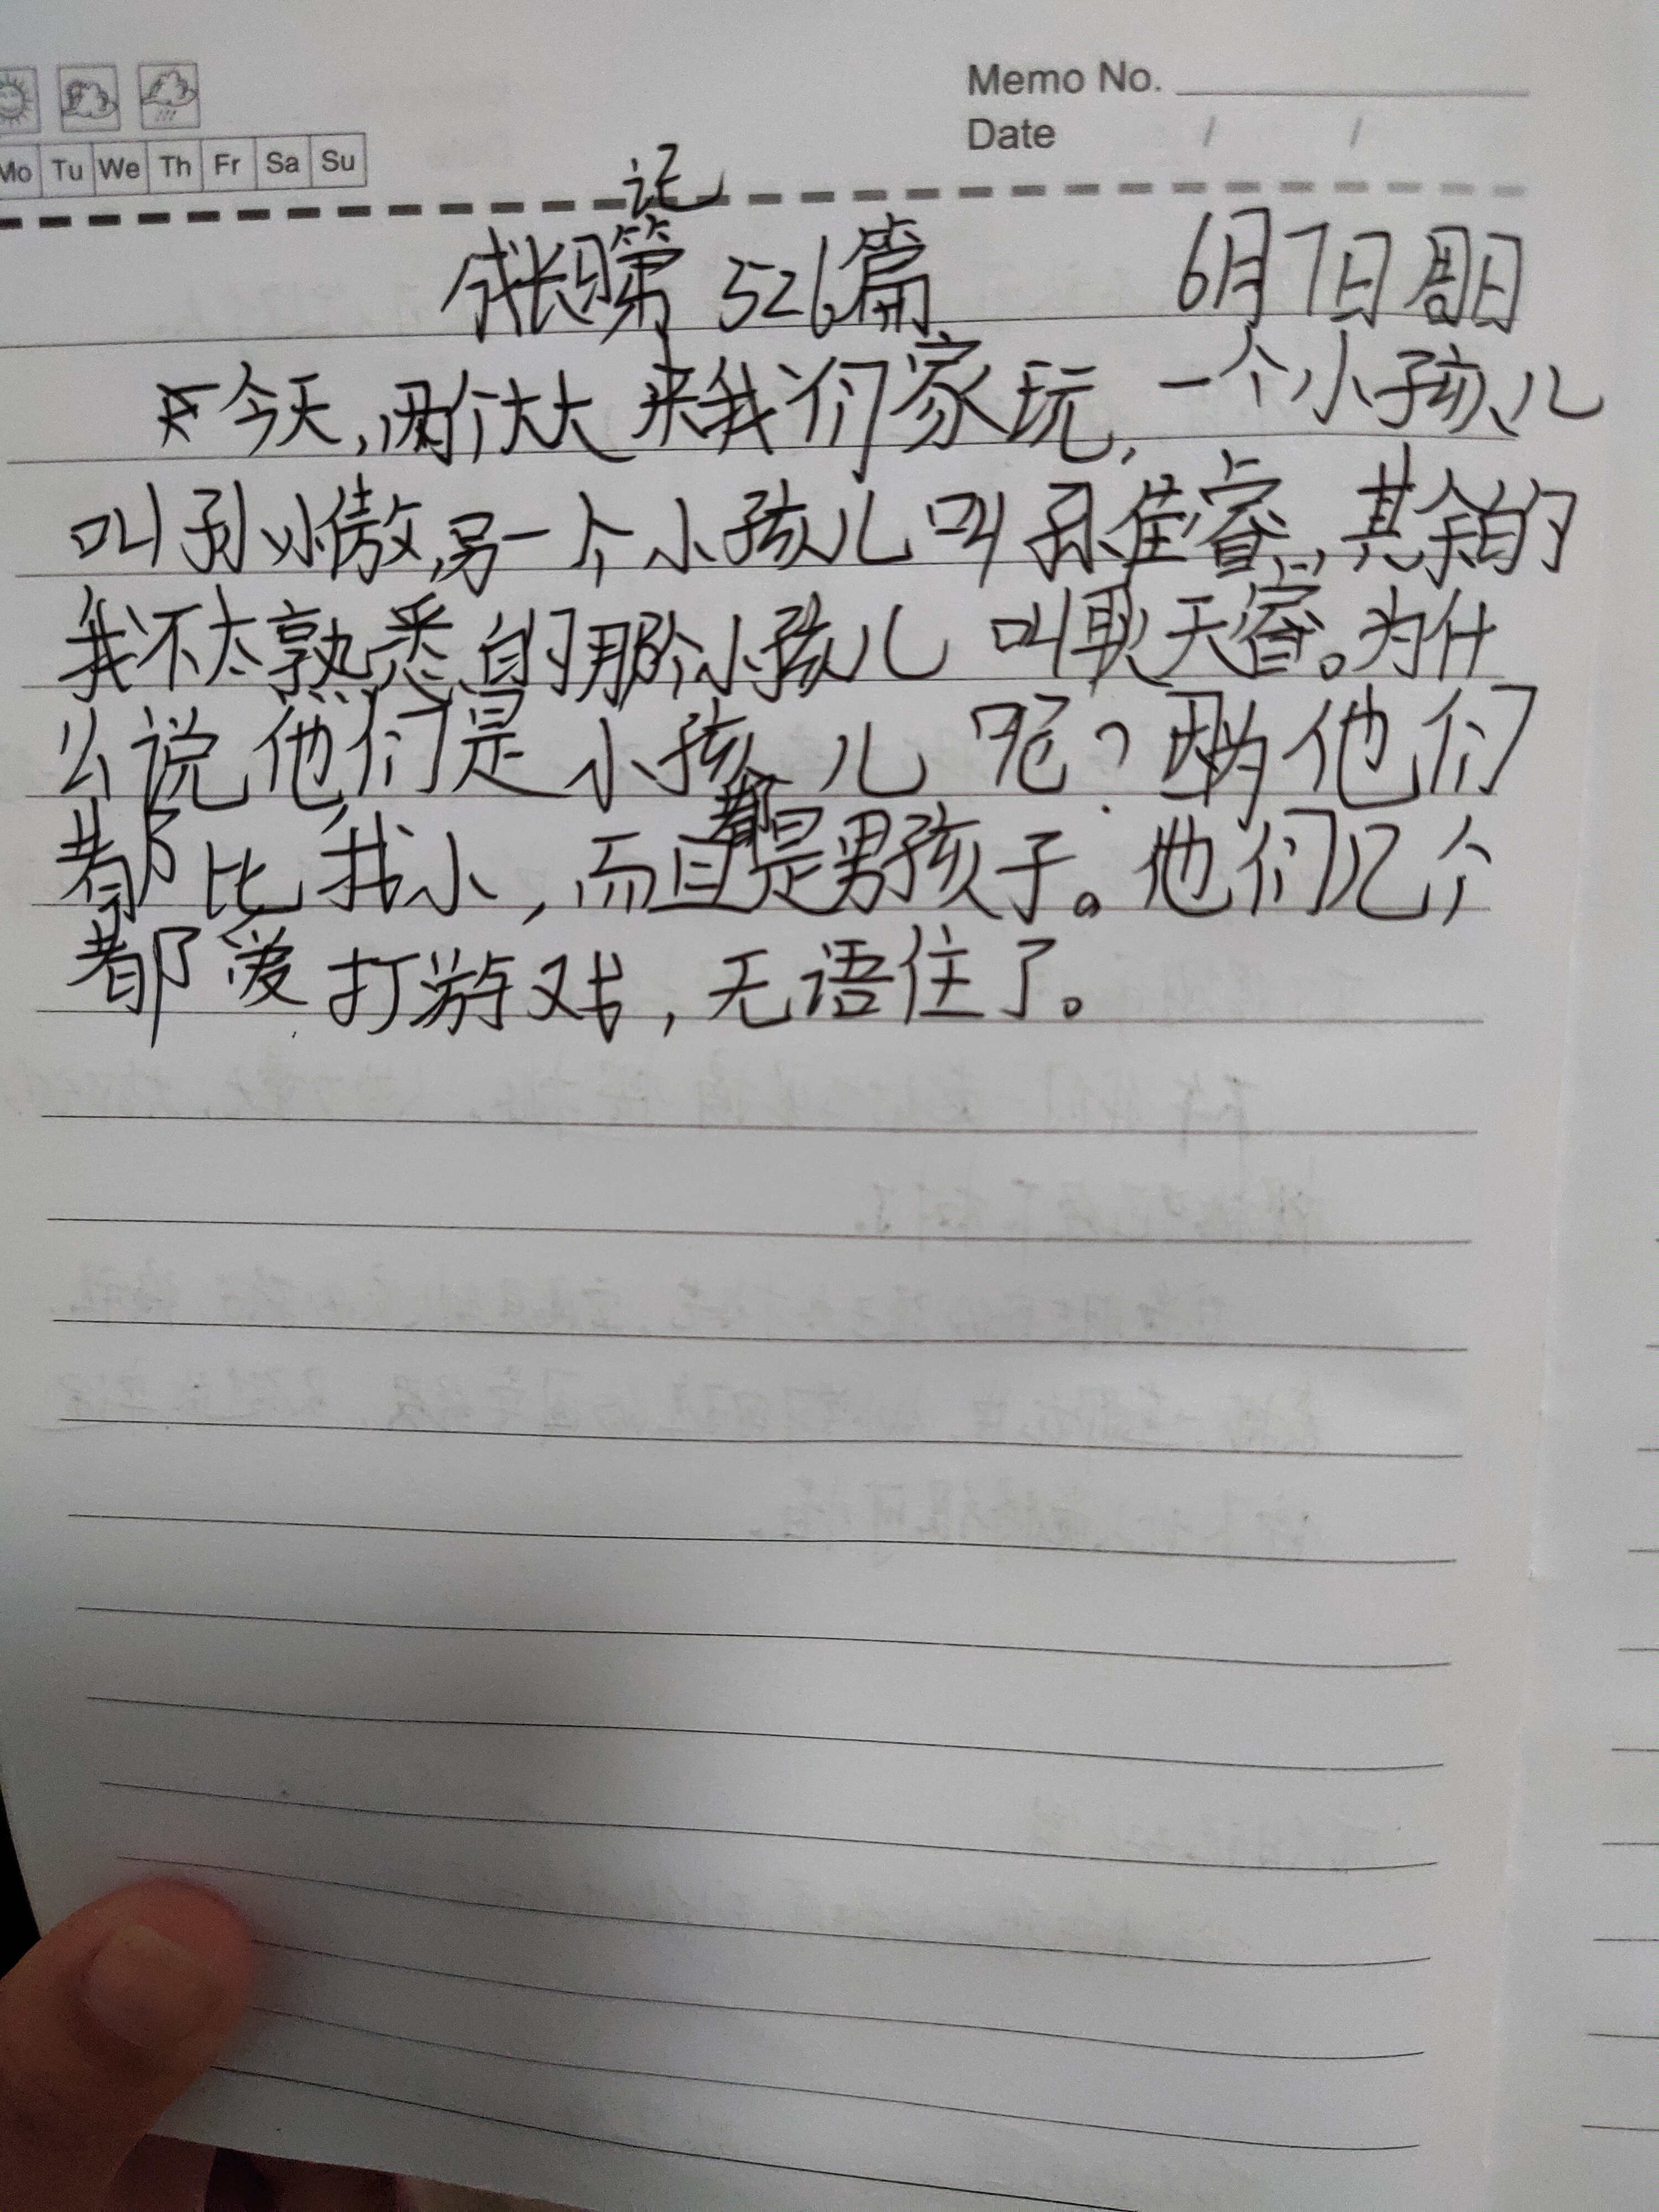 Memo No.
Date / /
Mo Tu We Th Fr Sa Su
记
成长第526篇 6月7日周日
今天,两个大大来我们家玩,一个小孩儿
叫孙小傲,另一个小孩儿叫孙佳睿,其余的
我不太熟悉的那个小孩儿叫耿天睿。为什
么说他们是小孩儿呢?因为他们
都比我小,而且都是男孩子。他们几个
都爱打游戏,无语住了。